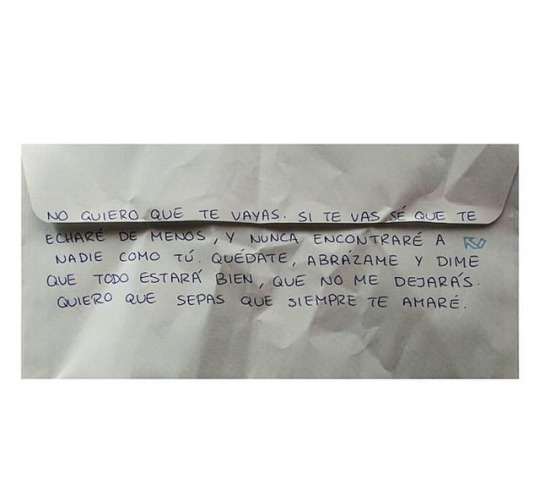 NO QUIERO QUE TE VAYAS. SI TE VAS SÉ QUE TE
ECHARÉ DE MENOS, Y NUNCA ENCONTRARÉ A
NADIE COMO TÚ. QUÉDATE, ABRÁZAME Y DIME
QUE TODO ESTARÁ BIEN, QUE NO ME DEJARÁS.
QUIERO QUE SEPAS QUE SIEMPRE TE AMARÉ.